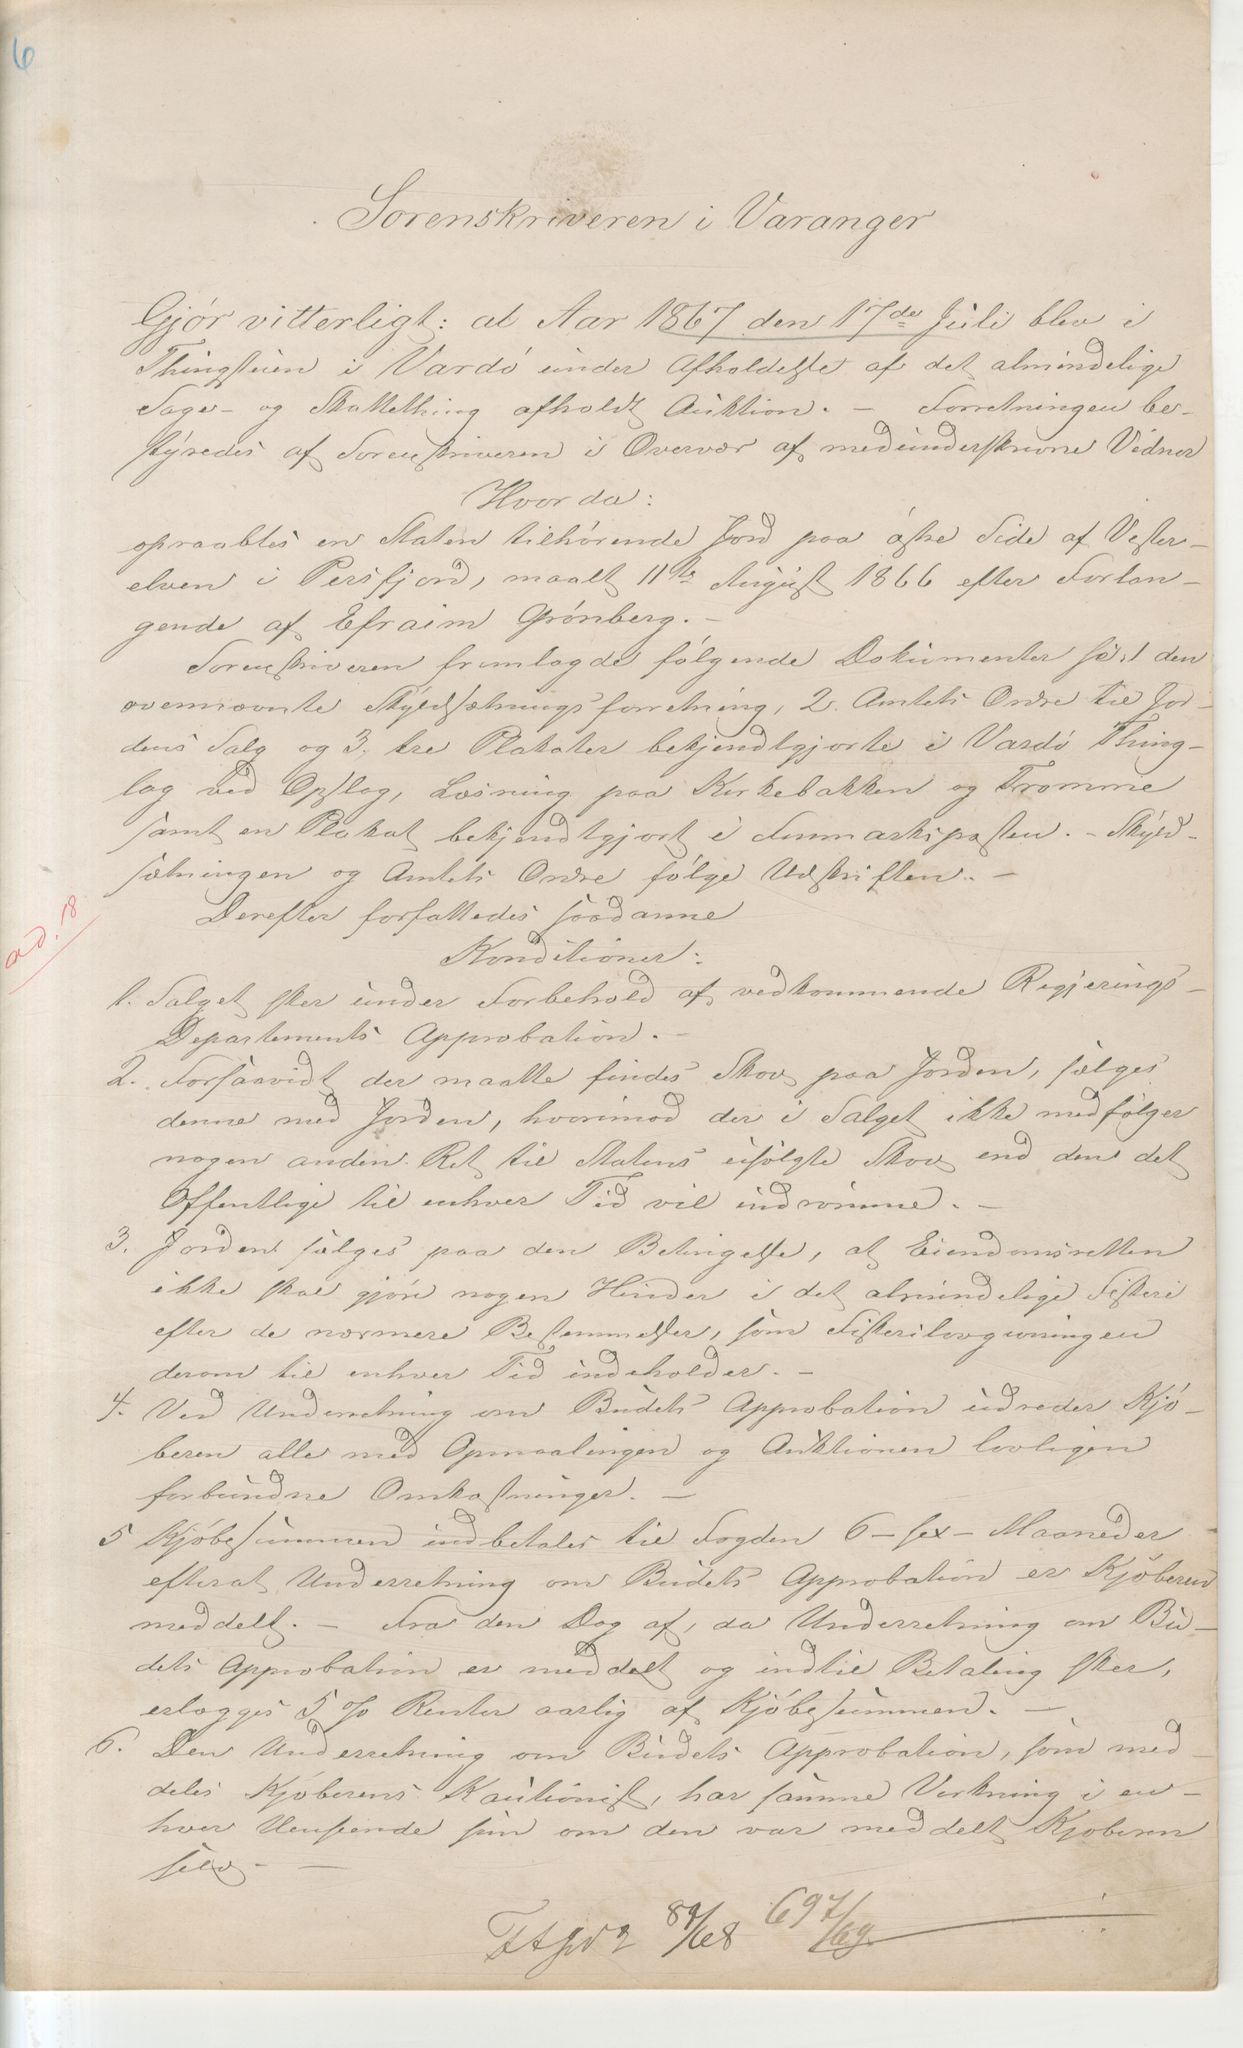 6
Sorenskriveren i Varanger
Gjør vitterligt: at Aar 1867 den 17de Juli blev i
Thingstuen i Vardø under Afholdelse af det almindelige
Sage- og Skattething afholdt Auktion. - Forretningen be-
styredes af Sorenskriveren i Overvær af medunderskrevne Vidner
Hvorda:
opraabtes en Staten tilhørende Jord paa østre Side af Vester-
elven i Persfjord, maalt 11te August 1866 efter Forlan-
gende af Efraim Grønberg. -
Sorenskriveren fremlagde følgende Dokumenter 1 den
ovennævnte Skyldsætningsforretning, 2. Amtets Ordre til Jor-
dens Salg og 3, tre Plakater bekjendtgjorte i Vardø Thing-
lag ved Opslag, Læsning paa Kirkebakken og Tromme
samt en Plakat bekjendtgjort i Finmarksposten. - Skyld-
sætningen og Amtets Ordre følge Udskriften. -
Derefter forfattedes saadanne
ad. 18
Konditioner:
1. Salget sker under Forbehold af vedkommende Regjerings-
Departements Approbation. -
2. Forsaavidt der maatte findes Skov paa Jorden, sælges
denne med Jorden, hvorimod der i Salget ikke medfølger
nogen anden Ret til Statens usolgte Skov end den det
Offentlige til enhver Tid vil indrømme. -
3. Jorden sælges paa den Betingelse, at Eiendomsretten
ikke skal gjøre nogen Hinder i det almindelige Fiskeri
efter de nærmere Bestemmelser, som Fiskerilovgivningen
derom til enhver Tid indeholder. -
4. Ved Underretning om Budets Approbation udreder Kjø-
beren alle med Opmaalingen og Auktionen lovligen
forbundne Omkostninger. -
5 Kjøbesummen indbetales til Fogden 6 - sex - Maaneder
efterat Underretning om Budets Approbation er Kjøberen
meddelt. - Fra den Dag af, da Underretning om Bu-
dets Approbation er meddelt og indtil Betaling sker,
erlægges 5 o/o Renter aarlig af Kjøbesummen. -
6. Den Underretning om Budets Approbation, som med-
deles Kjøberens Kautionist, har samme Virkning i en-
hver Henseende som om den var meddelt Kjøberen
selv. -
89/68 697/69